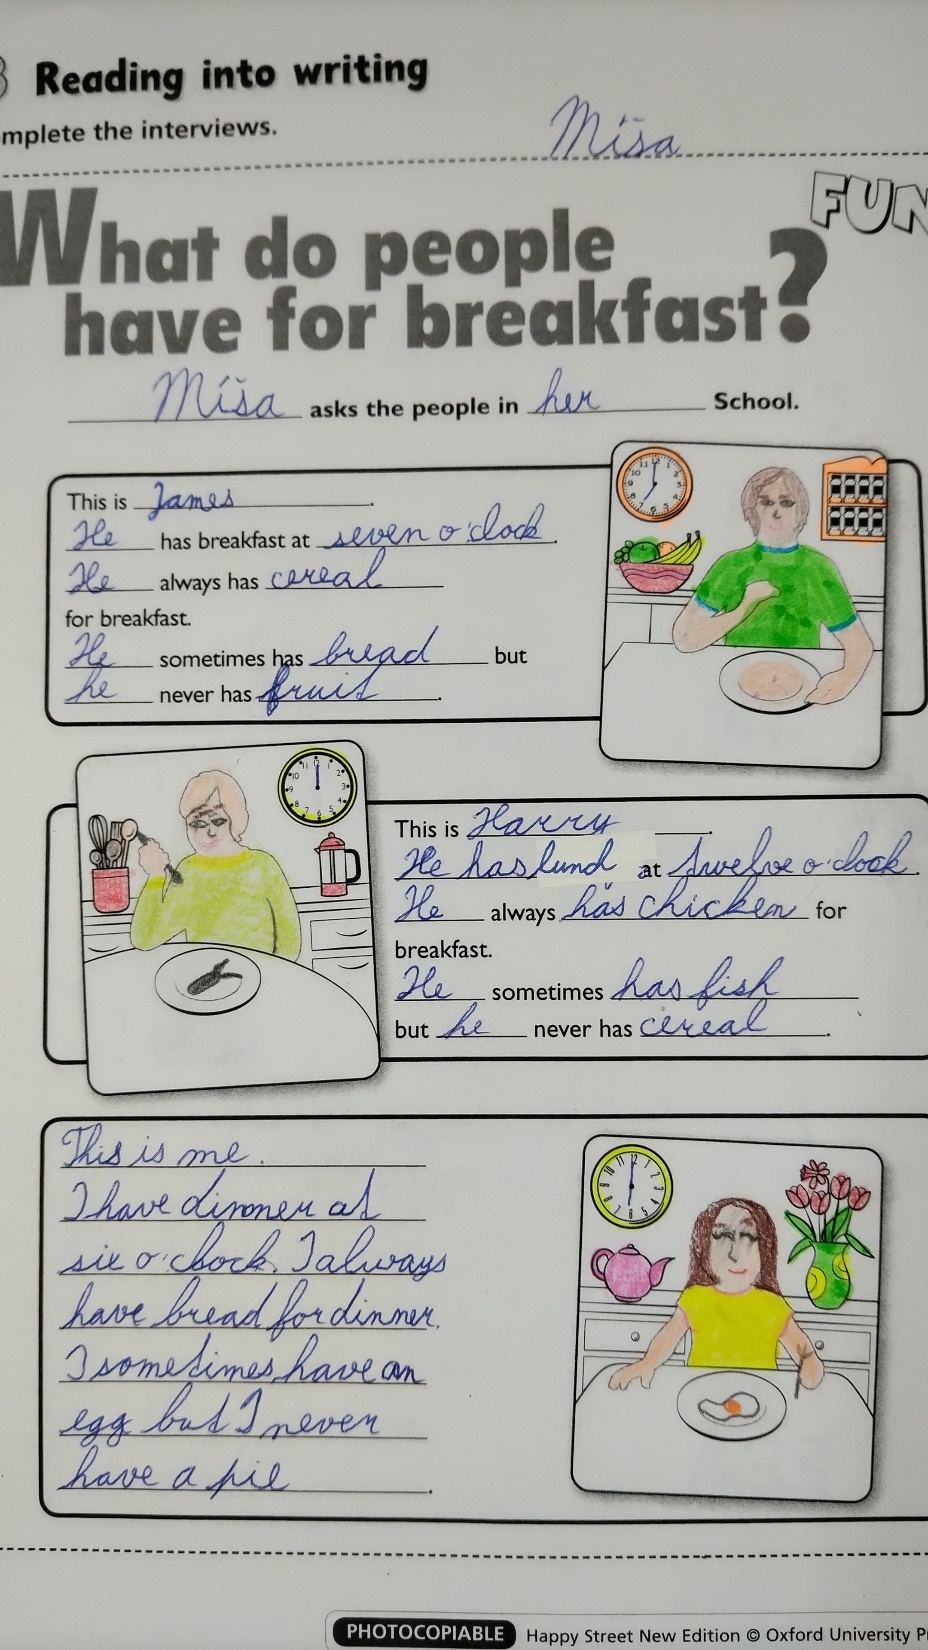 Reading into writing
mplete the interviews.
Míša
FUN
What do people
have for breakfast?
Míša asks the people in her School.
This is James.
He has breakfast at seven o'clock.
He always has cereal
for breakfast.
He sometimes has bread but
he never has fruit.
This is Harry.
He has lunch at twelve o'clock.
He always has chicken for
breakfast.
He sometimes has fish
but he never has cereal.
This is me.
I have dinner at
six o'clock. I always
have bread for dinner.
I sometimes have an
egg but I never
have a pie.
PHOTOCOPIABLE Happy Street New Edition © Oxford University P